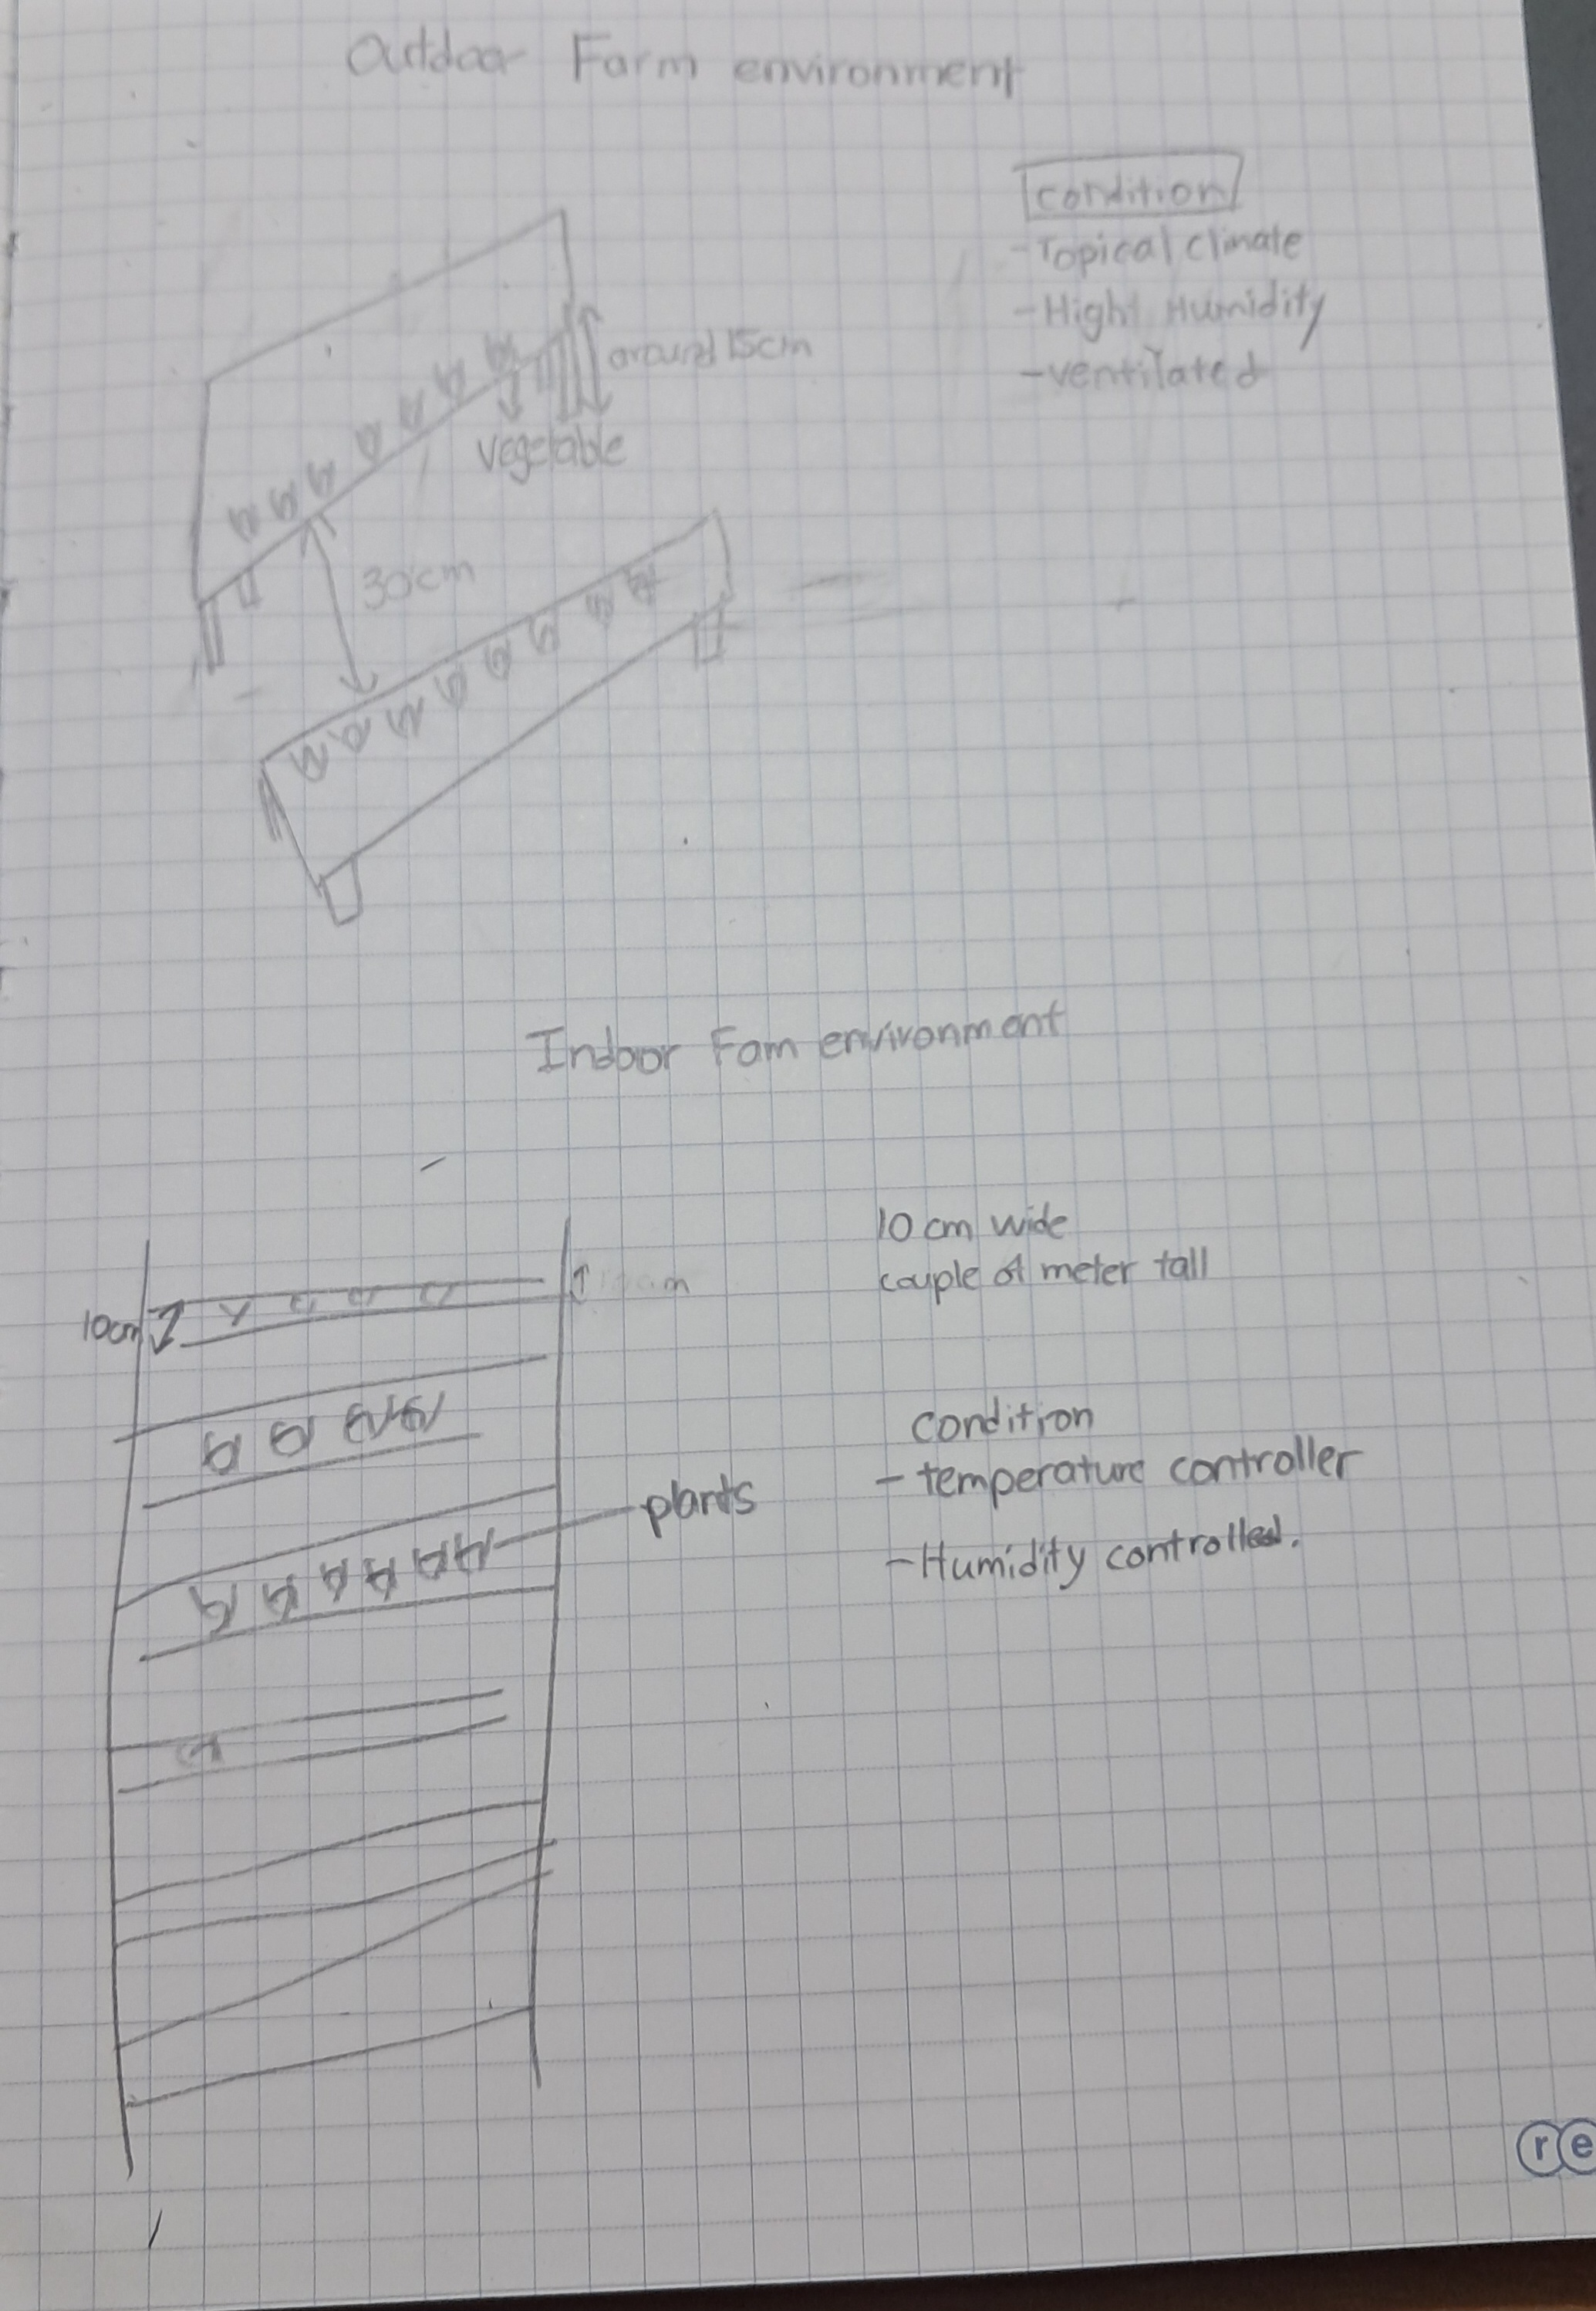 Outdoor Farm environment
condition
- Topical climate
- Hight Humidity
- ventilated
around 15cm
vegetable
30cm
Indoor Fam environment
10 cm wide
couple of meter tall
10cm
condition
- temperature controller
plants
- Humidity controlled.
re